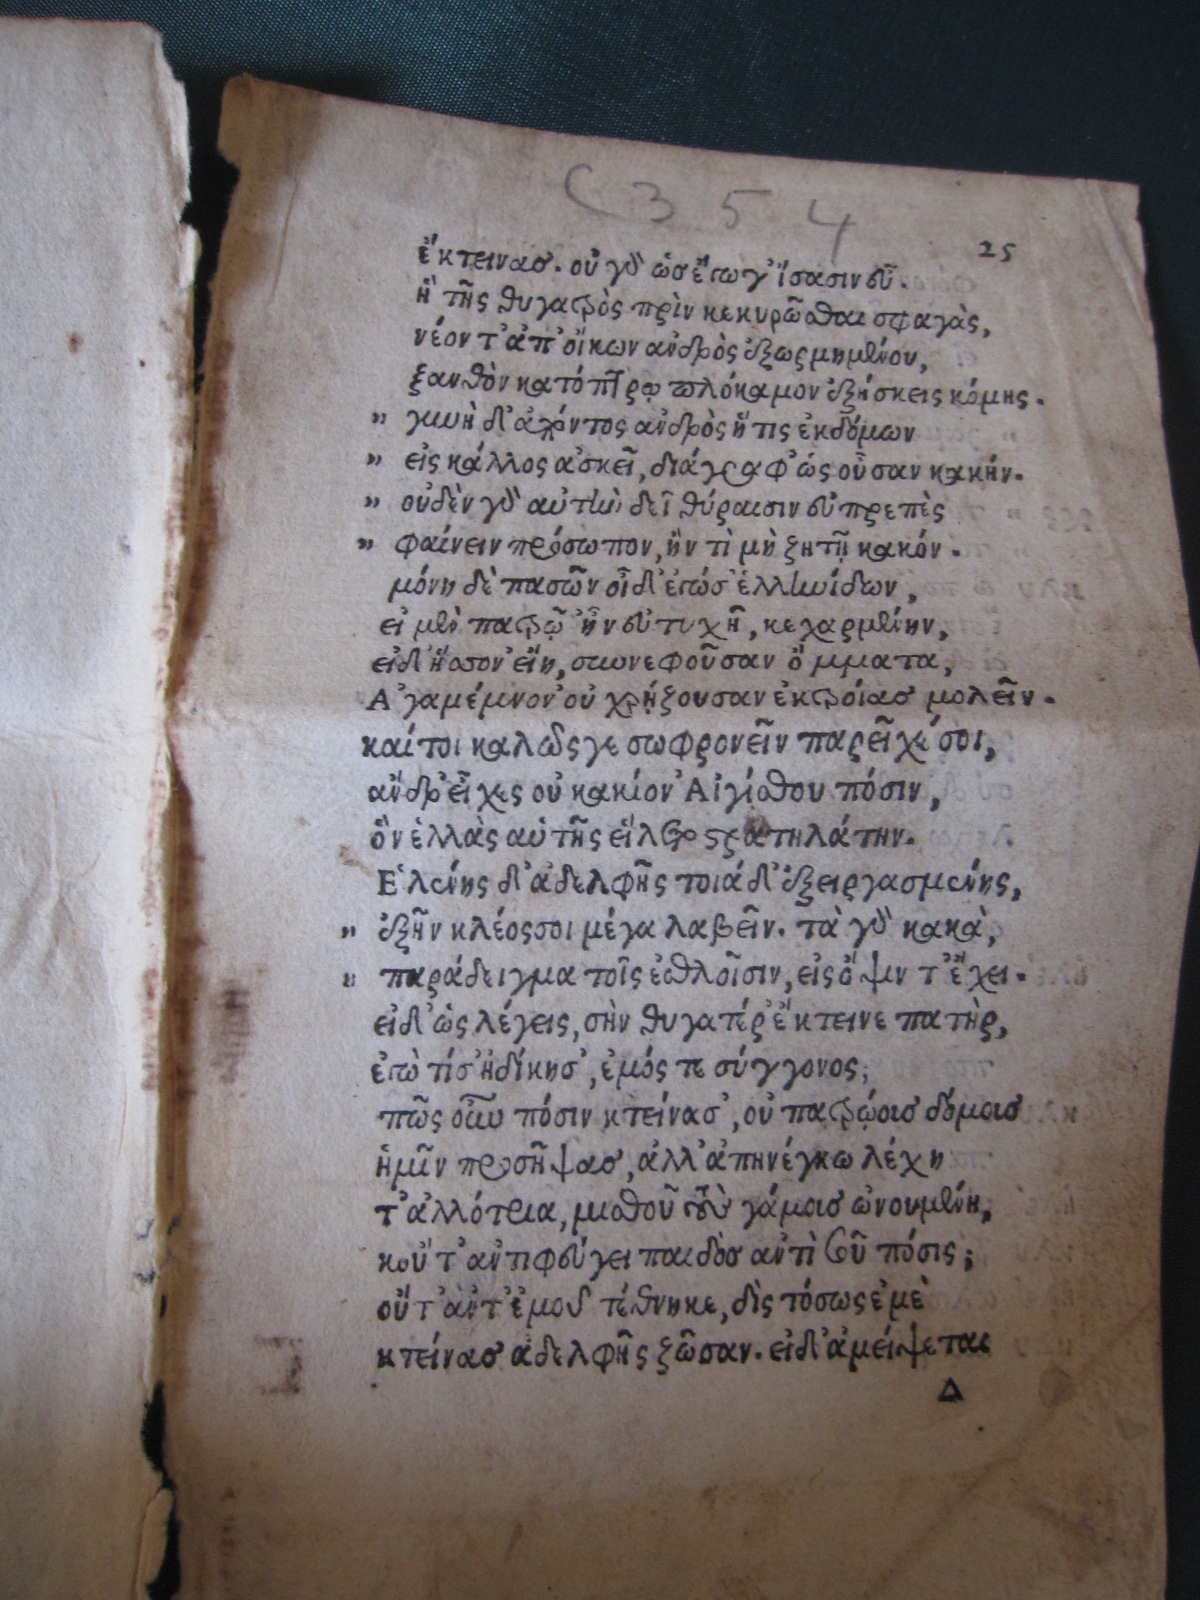 C 3 5 4
25
ἔκτεινας. οὐ γὰρ ὡς ἔγωγ' ἴσασιν εὖ.
ἣ τῆς θυγατρὸς πρὶν κεκυρῶσθαι σφαγὰς,
νέον τ' ἀπ' οἴκων ἀνδρὸς ἐξωρμημένου,
ξανθὸν κατόπτρῳ πλόκαμον ἐξήσκεις κόμης.
" γυνὴ δ' ἀπόντος ἀνδρὸς ἥτις ἐκ δόμων
" εἰς κάλλος ἀσκεῖ, διάγραφ' ὡς οὖσαν κακήν.
" οὐδὲν γὰρ αὐτὴν δεῖ θύραισιν εὐπρεπὲς
" φαίνειν πρόσωπον, ἤν τὶ μὴ ζητῇ κακόν.
μόνη δὲ πασῶν οἶδ' ἐγώ σ' ἑλληνίδων,
εἰ μὲν πατρῷ' ἦν εὐτυχῆ, κεχαρμένην,
εἰ δ' ἥσσον' εἴη, συννεφοῦσαν ὄμματα,
Ἀγαμέμνον' οὐ χρῄζουσαν ἐκ τροίας μολεῖν.
καίτοι καλῶς γε σωφρονεῖν παρεῖχέ σοι,
ἄνδρ' εἶχες οὐ κακίον' Αἰγίσθου πόσιν,
ὃν ἑλλὰς αὑτῆς εἵλετο στρατηλάτην.
Ἑλένης δ' ἀδελφῆς τοιάδ' ἐξειργασμένης,
" ἐξῆν κλέος σοι μέγα λαβεῖν. τὰ γὰρ κακὰ,
" παράδειγμα τοῖς ἐσθλοῖσιν, εἰς ὄψιν τ' ἔχει.
εἰ δ' ὡς λέγεις, σὴν θυγατέρ' ἔκτεινε πατὴρ,
ἐγὼ τί σ' ἠδίκησ', ἐμός τε σύγγονος;
πῶς οὖν πόσιν κτείνας', οὐ πατρῴοις δόμοις
ἡμῖν προσῆψας, ἀλλ' ἀπηνέγκω λέχη
τ' ἀλλότρια, μισθοῦ τοὺς γάμοις ὠνουμένη,
κοὔτ' ἀντιφεύγει παιδὸς ἀντὶ σοῦ πόσις;
οὔτ' ἀντ' ἐμοῦ τέθνηκε, δὶς τόσως ἐμὲ
κτείνας ἀδελφῆς ζῶσαν. εἰ δ' ἀμείψεται
Δ